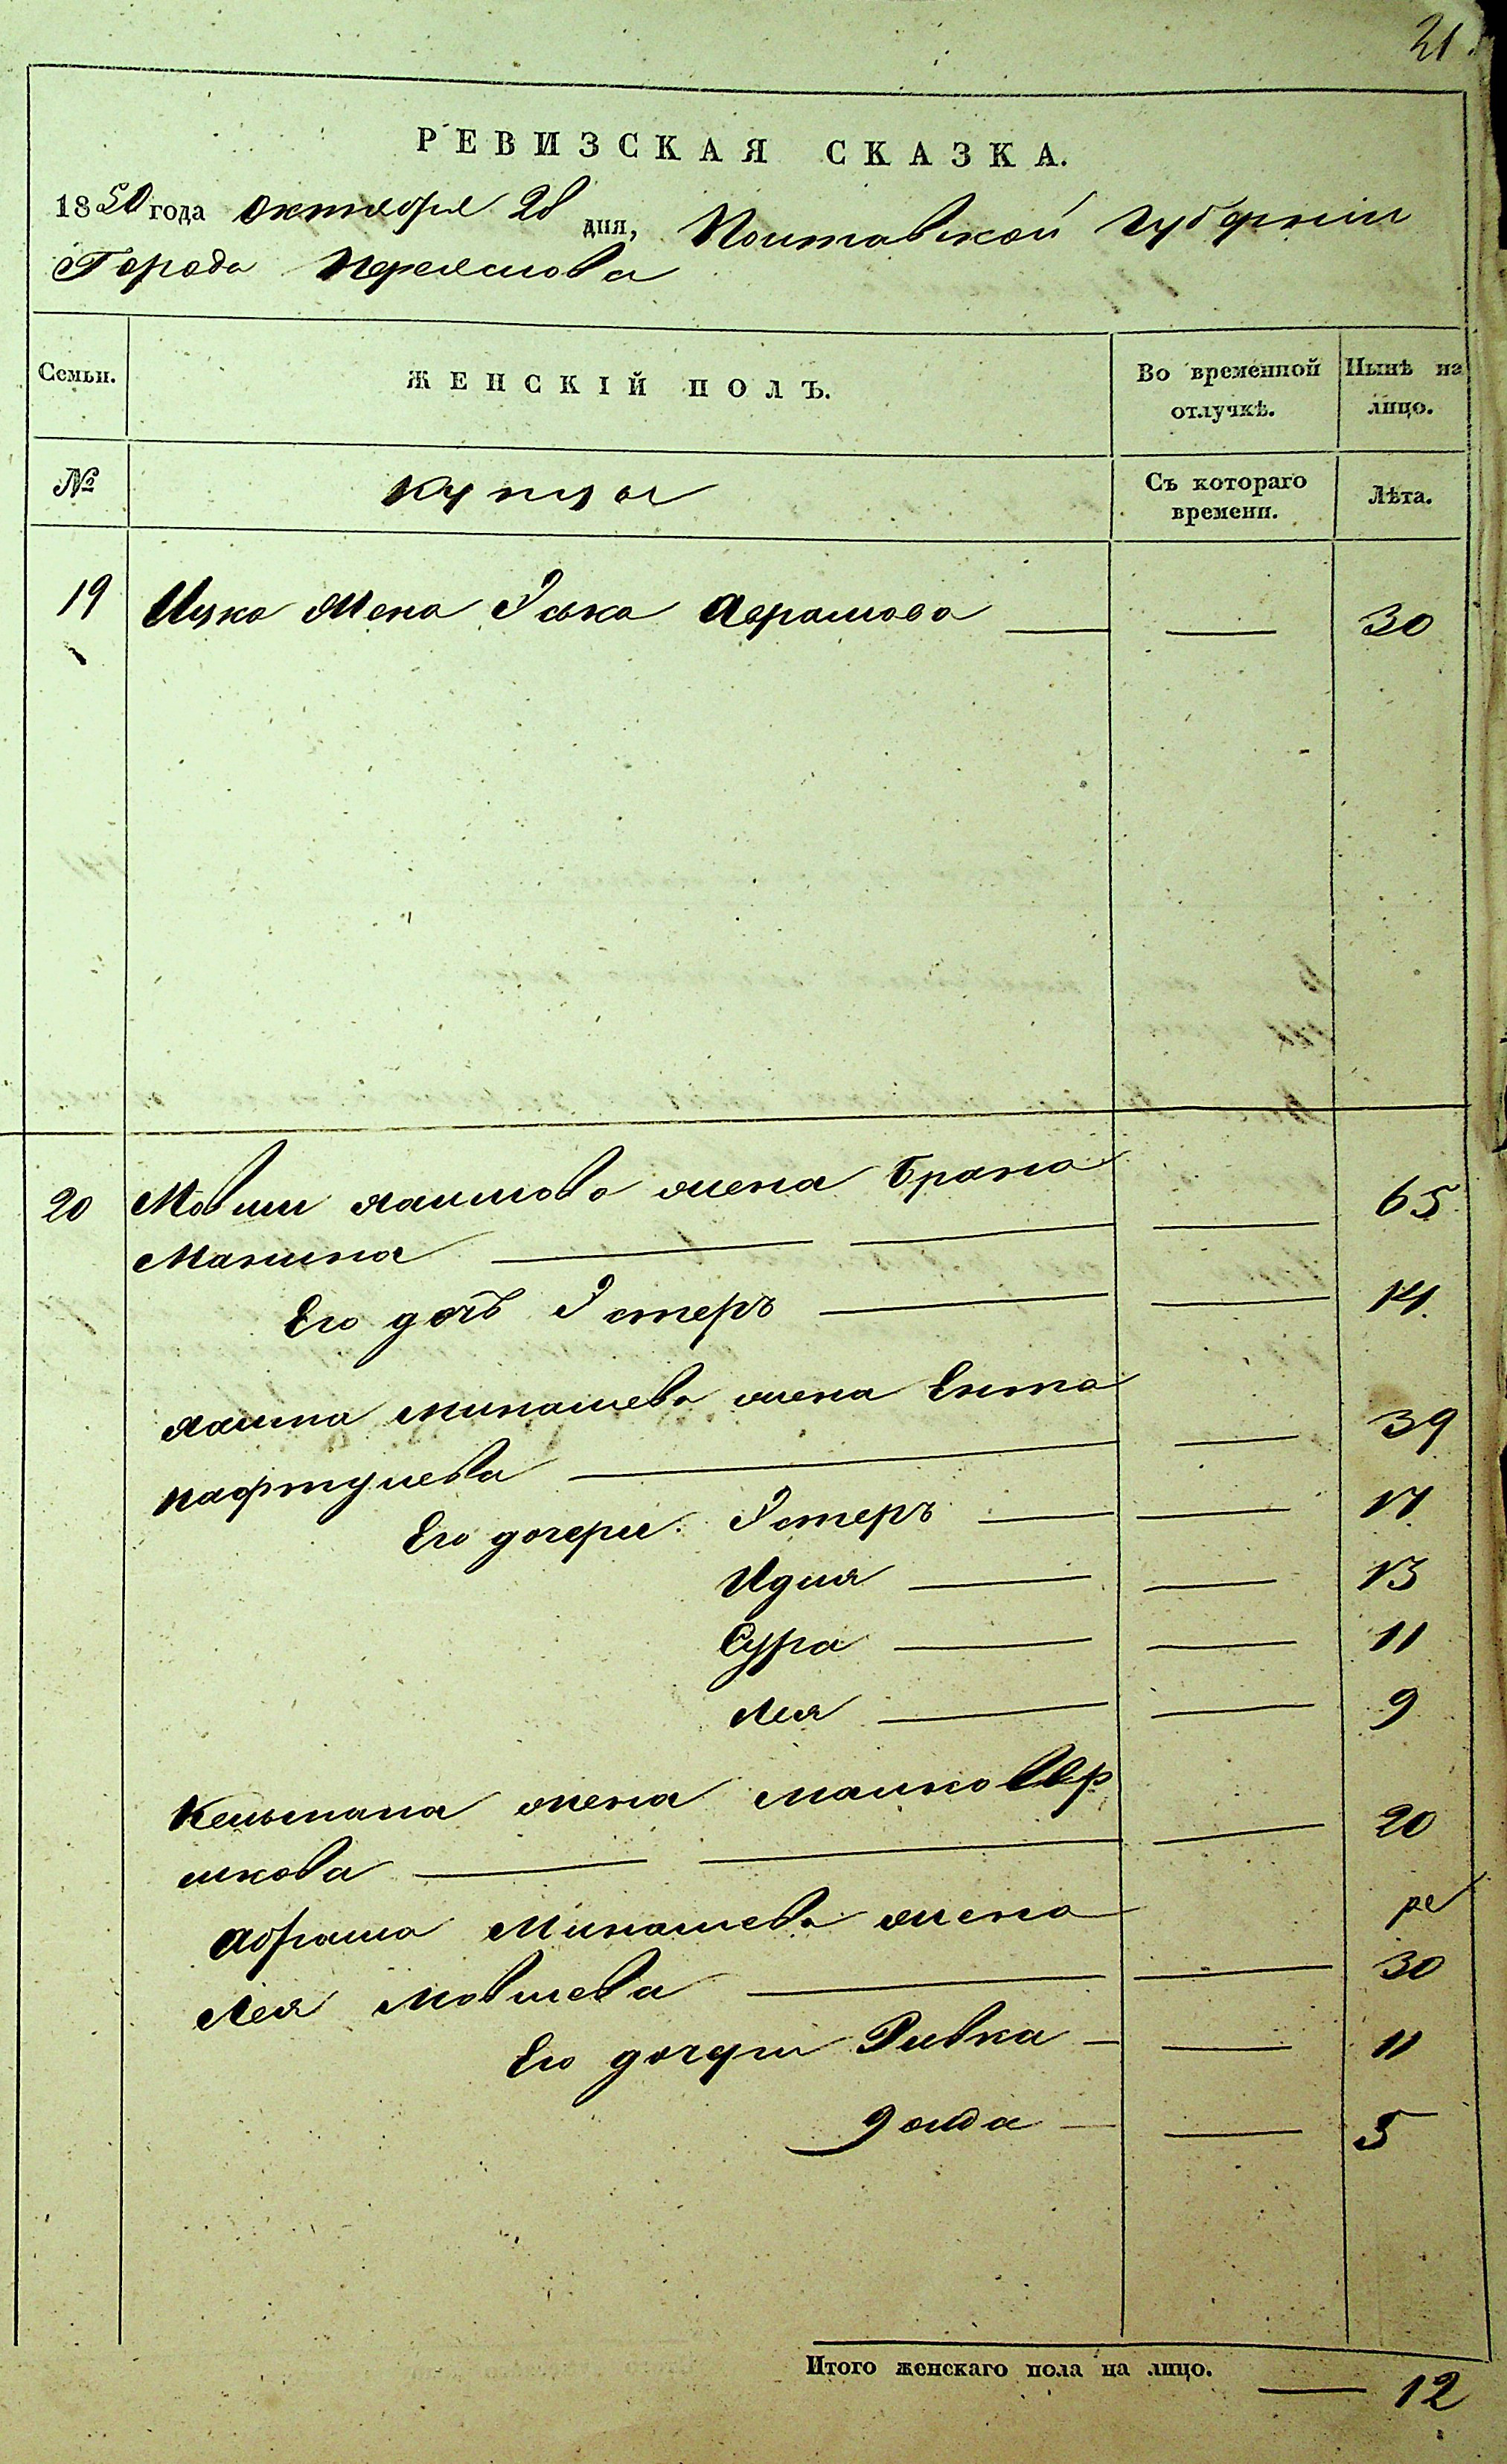 21.
РЕВИЗСКАЯ СКАЗКА.
1850 года октября 28 дня, Полтавской Губернии
Города Переяслова
Семьи. ЖЕНСКІЙ ПОЛЪ. Во временной отлучкѣ. Нынѣ на лицо.
№ Купцы Съ котораго времени. Лѣта.
19 Ицка жена Эська Аврамова — — 30
20 Мовши Хаимова жена Брана
Манина — — — 65
Его дочь Эстеръ — — 14
Хаима Минашева жена Ента
Нафтулева — — 39
Его дочери: Эстеръ — — 17
Идля — — 13
Сура — — 11
Лея — — 9
Кельмана жена Малка
— — — 20
Абрама Минашева жена
Лея Мовшева — — 30
Его дочери Ривка — — 11
— — 5
Итого женскаго пола на лицо. — 12